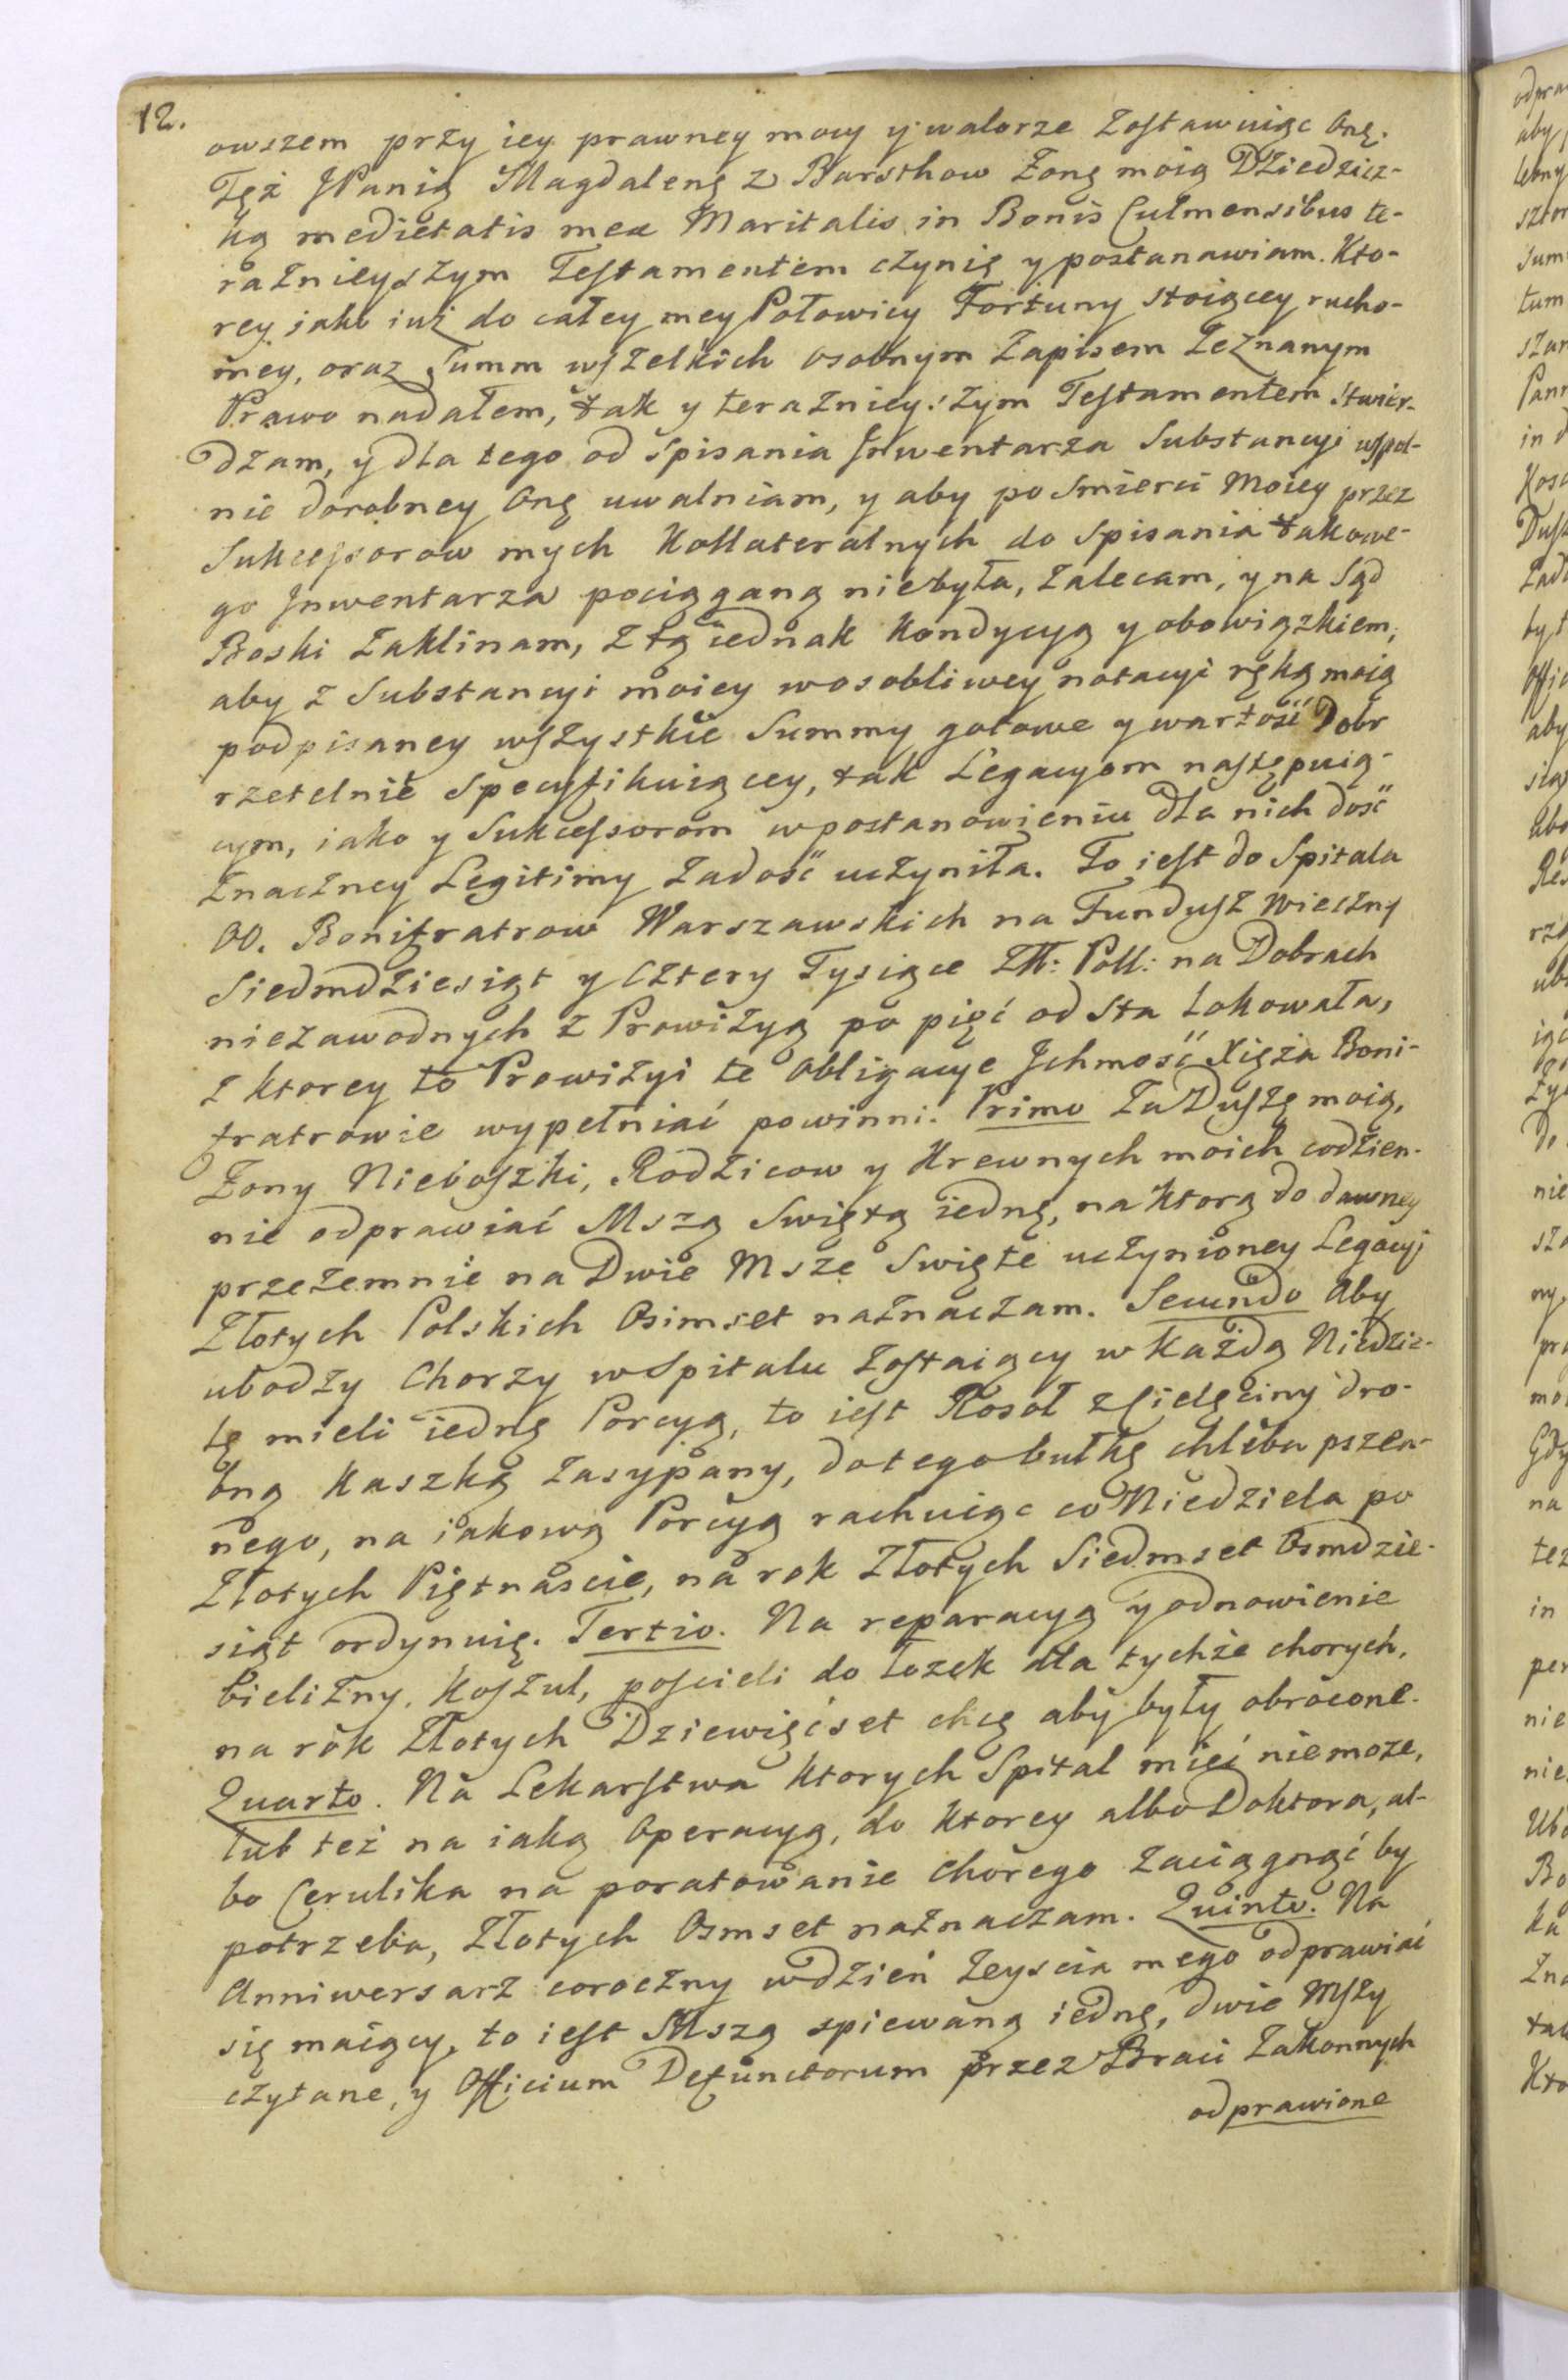 12.
owszem przy iey prawney mocy y walorze zostawuiąc Onę.
Tęż JPanią Magdalenę z Barsthow Zonę moią Dziedzicz-
ką medietatis mea Maritalis in Bonis Culmensibus te-
raznieyszym Testamentem czynię y postanawiam. Kto-
rey iako iuż do całey mey Połowicy Fortuny stoiącey rucho-
mey, oraz Summ wszelkich osobnym Zapisem Zeznanym
Prawo nadałem, tak y teraznieyszym Testamentem stwier-
dzam, y dla tego od spisania Jnwentarza Substancyi wspol-
nie dorobney Onę uwalniam, y aby po Smierci Moiey przez
Sukcessorow mych Kollateralnych do Spisania takowe-
go Jnwentarza pociągganą niebyła, zalecam, y na Sąd
Boski zaklinam, z tą iednak Kondycyą y obowiązkiem,
aby z Substancyi moiey w osobliwey notacyi ręką moią
podpisaney wszystkie Summy gotowe y wartość Dobr
rzetelnie Specyfikuiącey, tak Legacyom następuią-
cym, iako y Sukcessorom w postanowieniu dla nich dość
Znaczney Legitimy zadość uczyniła. To iest do Spitala
OO. Bonifratrow Warszawskich na Fundusz Wieczny
Siedmdziesiąt y Cztery Tysiące Złł: Poll: na Dobrach
niezawodnych z Prowizyą po pięć od Sta Lokowała,
z ktorey to Prowizyi te Obligacye Jchmość Xięża Boni-
fratrowie wypełniać powinni. Primo Za Duszę moią,
Zony Nieboszki, Rodzicow y Krewnych moich codzien-
nie odprawiać Mszą Swiętą iednę, na ktorą do dawney
przezemnie na Dwie Msze Swięte uczynioney Legacyi
Złotych Polskich Osimset naznaczam. Secundo Aby
ubodzy Chorzy w Spitalu zostaiący w każdą Niedzie-
lę mieli iednę Porcyą, to iest Rosoł z Cielęciny dro-
bną Kaszką zasypany, do tego bułkę chleba pszen-
nego, na iakową Porcyą rachuiąc co Niedziela po
Złotych Piętnaście, na rok Złotych Siedmset Osmdzie-
siąt ordynuię. Tertio. Na reparacyą y odnowienie
bielizny, Koszul, poscieli do łozek dla tychże chorych,
na rok Złotych Dziewięćset chcę aby były obrócone.
Quarto. Na Lekarstwa ktorych Spital mieć niemoze,
lub też na iaką Operacyą, do ktorey albo Doktora, al-
bo Cerulika na poratowanie chorego zaciągnąć by
potrzeba, Złotych Osmset naznaczam. Quinto. Na
Anniwersarz coroczny w dzień Zeyscia mego odprawiać
się maiący, to iest Mszą spiewaną iednę, dwie Mszy
czytane, y Officium Defunctorum przez Braci Zakonnych
odprawione